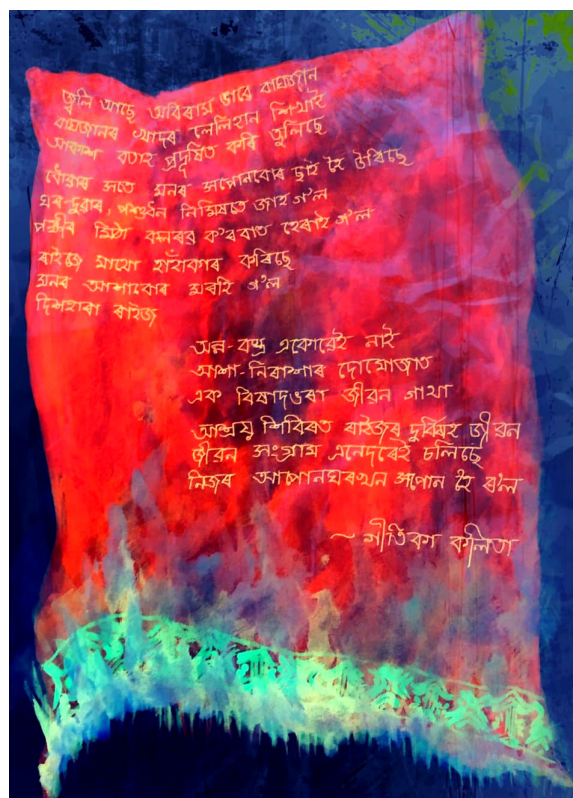 জ্বলি আছে অবিৰাম ভাৱে বাঘজান
বাঘজানৰ খাদৰ লেলিহান শিখাই
আকাশ বতাহ প্ৰদূষিত কৰি তুলিছে
ধোঁৱাৰ সতে মনৰ সপোনবোৰ ছাই হৈ উৰিছে
ঘৰ-দুৱাৰ, পশুধন নিমিষতে জাহ গ'ল
পক্ষীৰ মিঠা কলৰৱ ক'ৰবাত হেৰাই গ'ল
ৰাইজে মাথো হাঁহাকাৰ কৰিছে
মনৰ আশাবোৰ মৰহি গ'ল
দিশহাৰা ৰাইজ
অন্ন-বস্ত্ৰ একোৱেই নাই
আশা-নিৰাশাৰ দোমোজাত
এক বিষাদভৰা জীৱন গাথা
আশ্ৰয় শিবিৰত ৰাইজৰ দুৰ্বিষহ জীৱন
জীৱন সংগ্ৰাম এনেদৰেই চলিছে
নিজৰ আপোনঘৰখন সপোন হৈ ৰ'ল
~ গীতিকা কলিতা